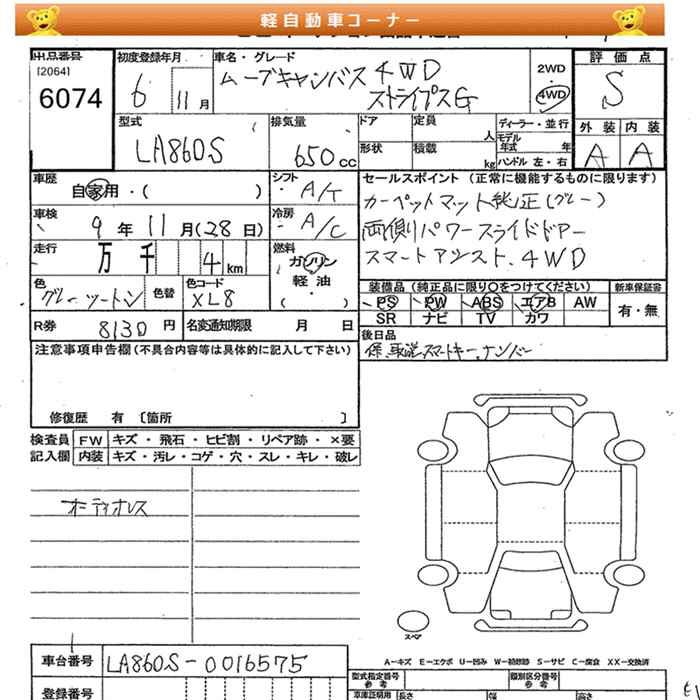 軽自動車コーナー
出品番号
[2064]
6074
初度登録年月
6 11月
車名・グレード
ムーブキャンバス 4WD
ストライプスG
2WD
・
4WD
評価点
S
外装 内装
A A
型式
LA860S
排気量
650cc
ドア 定員 人
形状 積載 kg
ディーラー・並行
モデル年式 年
ハンドル 左・右
車歴
自家用・( )
シフト
・A/T
車検
9年11月(28日)
冷房
・A/C
走行
万 千 4km
燃料
ガソリン
・
軽油
( )
色
グレーツートン
色替
色コード
XL8
R券 8130円
名変通知期限 月 日
セールスポイント (正常に機能するものに限ります)
カーペットマット純正(グレー)
両側パワースライドドアー
スマートアシスト、4WD
装備品(純正品に限り○をつけてください)
PS PW ABS エアB AW
SR ナビ TV カワ
新車保証書
有・無
後日品
保、取説、スマートキー、ナンバー
注意事項申告欄(不具合内容等は具体的に記入して下さい)
修復歴 有 〔箇所 〕
検査員記入欄
FW キズ・飛石・ヒビ割・リペア跡・×要
内装 キズ・汚レ・コゲ・穴・スレ・キレ・破レ
オーディオレス
スペア
A-キズ E-エクボ U-凹み W-補修跡 S-サビ C-腐食 XX-交換済
車台番号 LA860S-0016575
登録番号
型式指定番号
参考
類別区分番号
参考
車庫証明用 長さ 幅 高さ